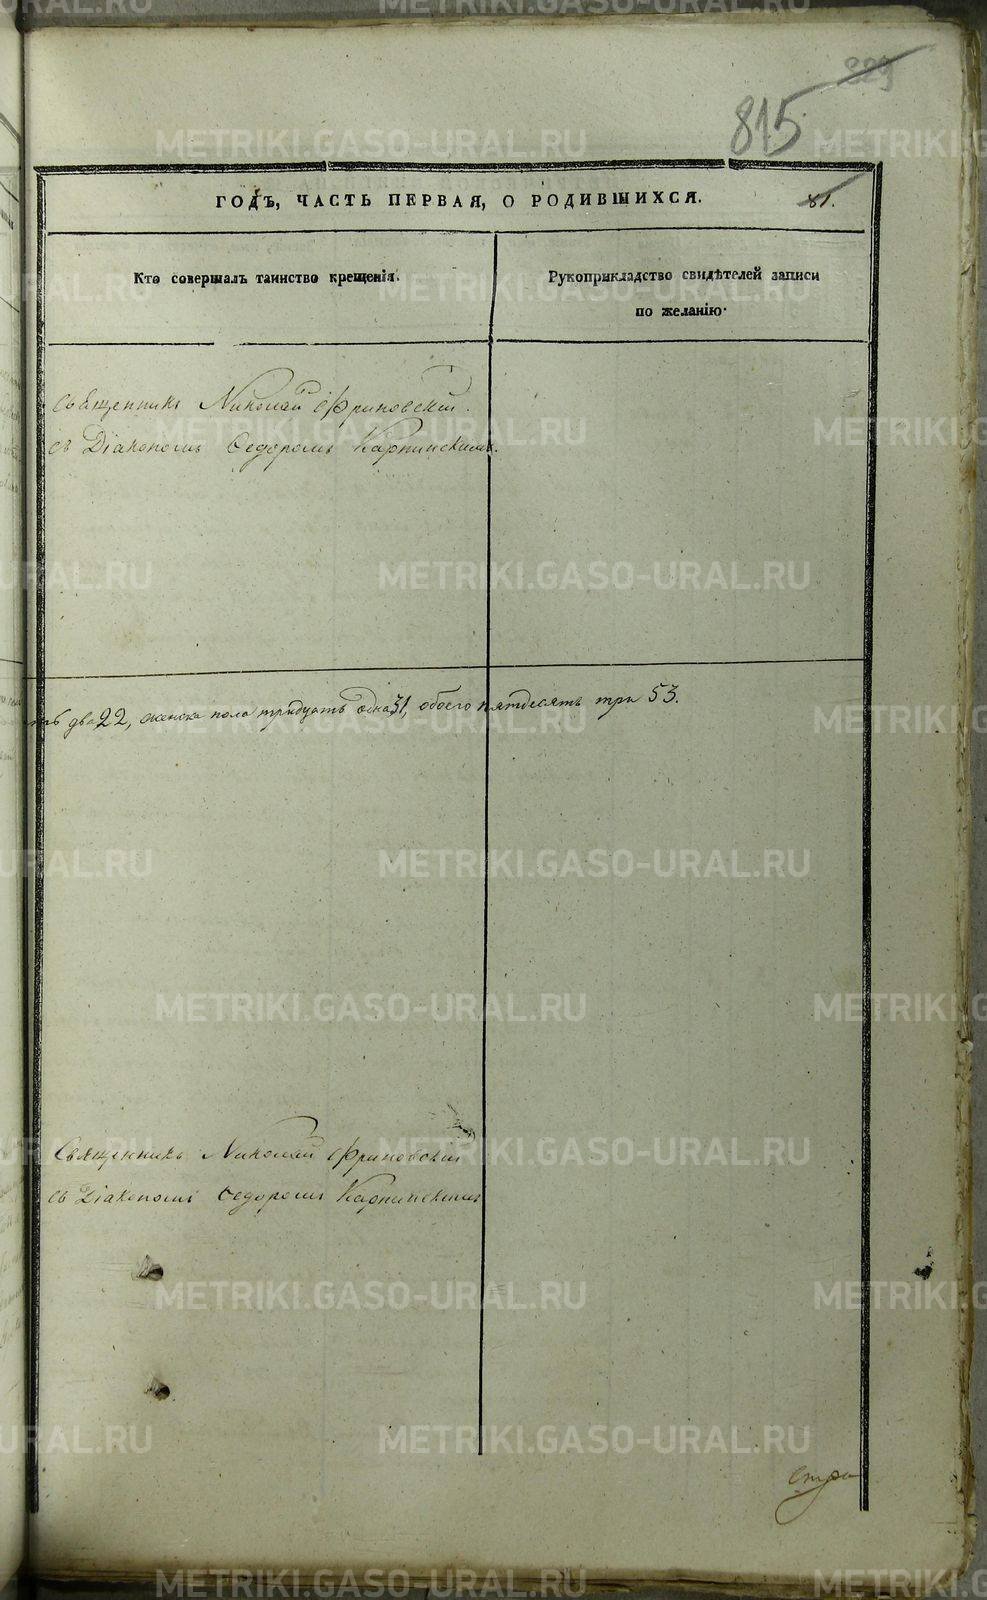 829
815
ГОДЪ, ЧАСТЬ ПЕРВАЯ, О РОДИВШИХСЯ.
81.
Кто совершалъ таинство крещенія.
Рукоприкладство свидѣтелей записи
по желанію.
Священникъ Николай
съ Діакономъ Ѳедоромъ Карпинскимъ.
два 22, женска пола тридцать одна 31, обоего пятдесятъ три 53.
Священникъ Николай
съ Діакономъ Ѳедоромъ Карпинскимъ
METRIKI.GASO-URAL.RU